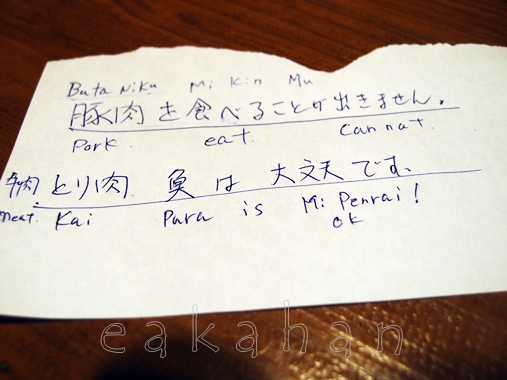 Buta Niku Mi Kin Mu
豚肉を食べることが出きません。
Pork. eat. Cannat.
牛肉. とり肉 魚は大丈夫です、
meat. Kai Para is Mi Penrai!
OK
eakahan